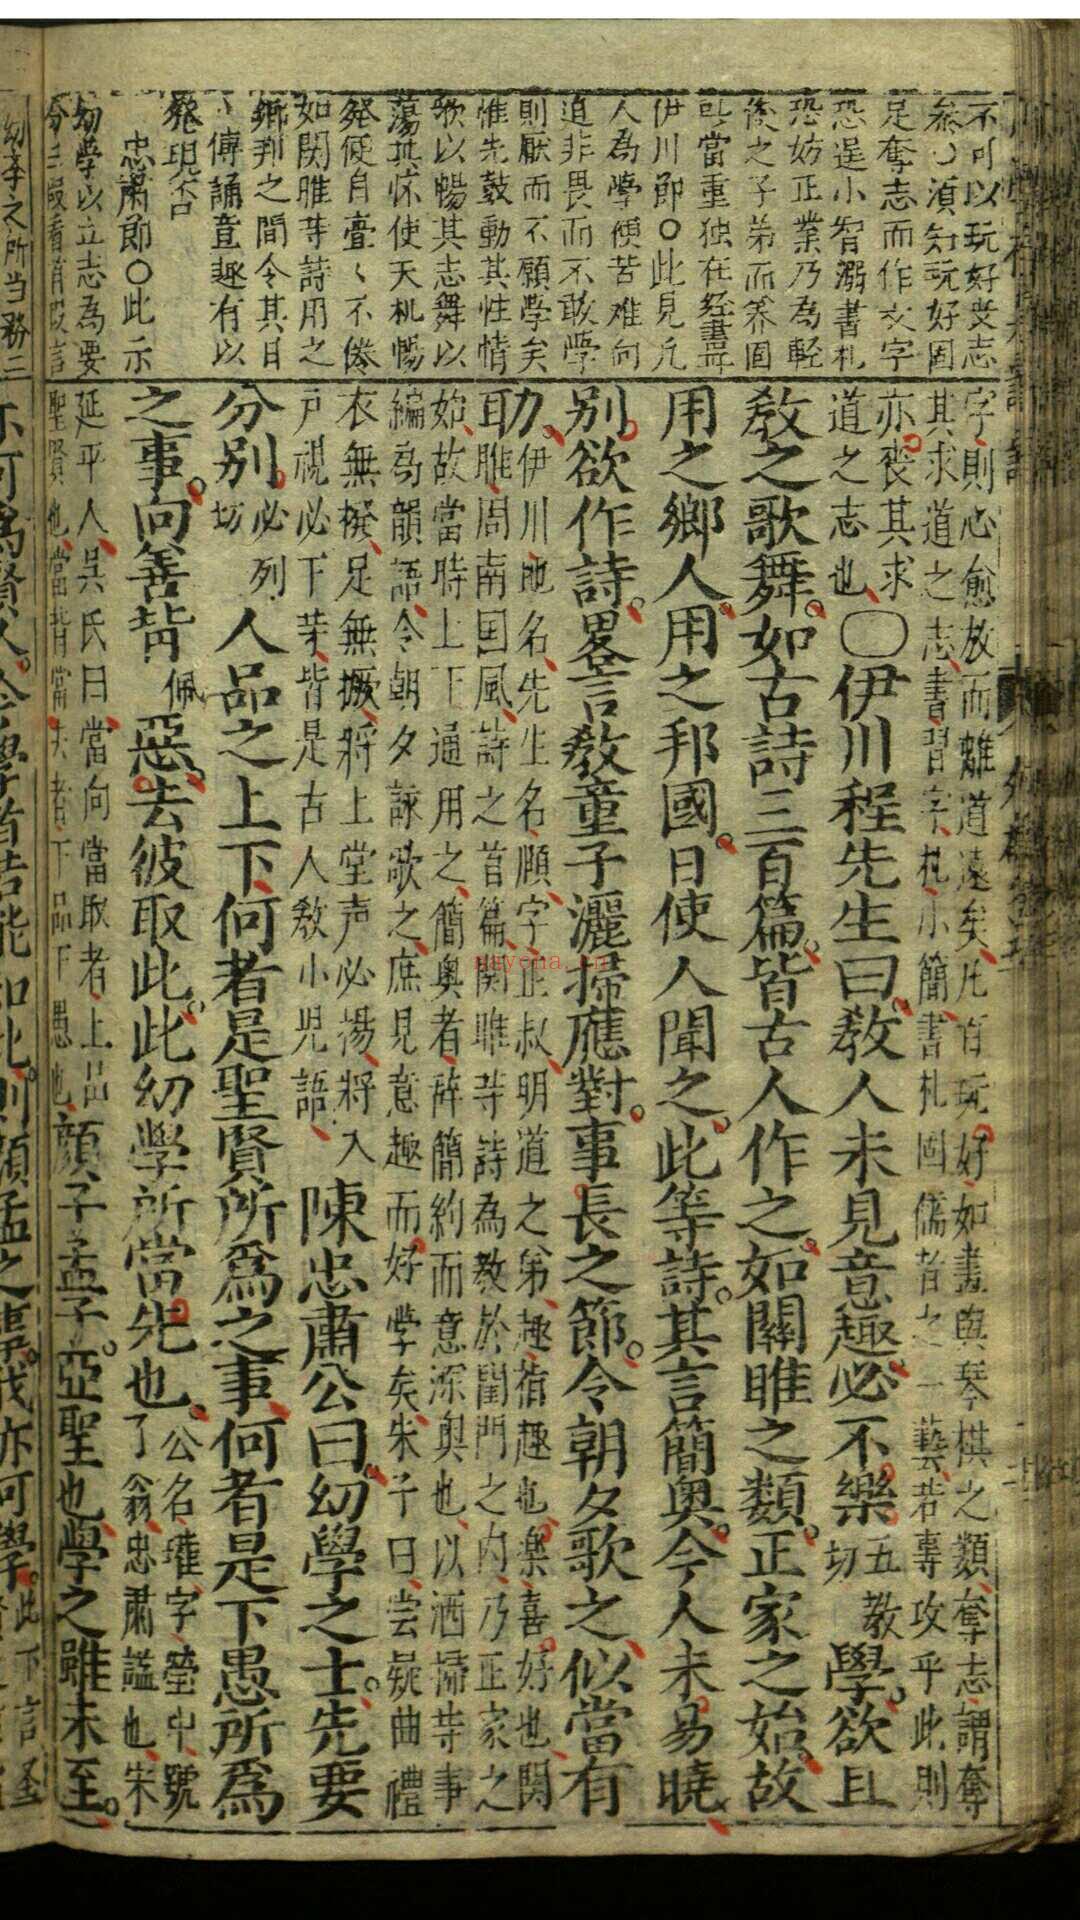 不可以玩好喪志
足奪志而作文字
恐逞小智溺書札
恐妨正業乃為輕
後之子弟而养固
當重独在经書
伊川節〇此見凡
人為學便苦难向
道非畏而不敢學
則厭而不願學矣
惟先鼓動其性情
歌以暢其志舞以
蕩其怀使天机暢
発便自亹〻不倦
如関雎等詩用之
鄉邦之間令其日
〻傳誦意趣有以
発現否
忠肅節〇此示
幼學以立志為要
字則心愈放而離道遠矣凡百玩好如畫與琴棋之類奪志謂奪
其求道之志書習字札小簡書札固儒者之一藝若專攻乎此則
亦喪其求
道之志也
〇伊川程先生曰教人未見意趣必不樂
五教
切
學欲且
教之歌舞如古詩三百篇皆古人作之如關雎之類正家之始故
用之鄉人用之邦國日使人聞之此等詩其言簡奥今人未易曉
別欲作詩畧言教童子灑掃應對事長之節令朝夕歌之似當有
助
伊川地名先生名頤字正叔明道之弟趣指趣也樂喜好也関
雎周南国風詩之首篇関雎等詩為教於閨門之内乃正家之
始故當時上下通用之簡奥者辞簡約而意深奥也以洒掃等事
編為韻語令朝夕詠歌之庶見意趣而好学矣朱子曰尝疑曲禮
衣無撥足無撅將上堂声必揚將入
户視必下等皆是古人教小児語
陳忠肅公曰幼學之士先要
分別
必列
切
人品之上下何者是聖賢所爲之事何者是下愚所爲
之事向善背
佩
惡去彼取此此幼學所當先也
公名瓘字瑩中號
了翁忠肅謚也朱
延平人吴氏曰當向當取者上品
聖賢也當背當去者下品下愚也
顔子孟子亞聖也學之雖未至
幼学之所当務
亦可爲賢人今學者若能知此則顔孟之事我亦可學
此下言